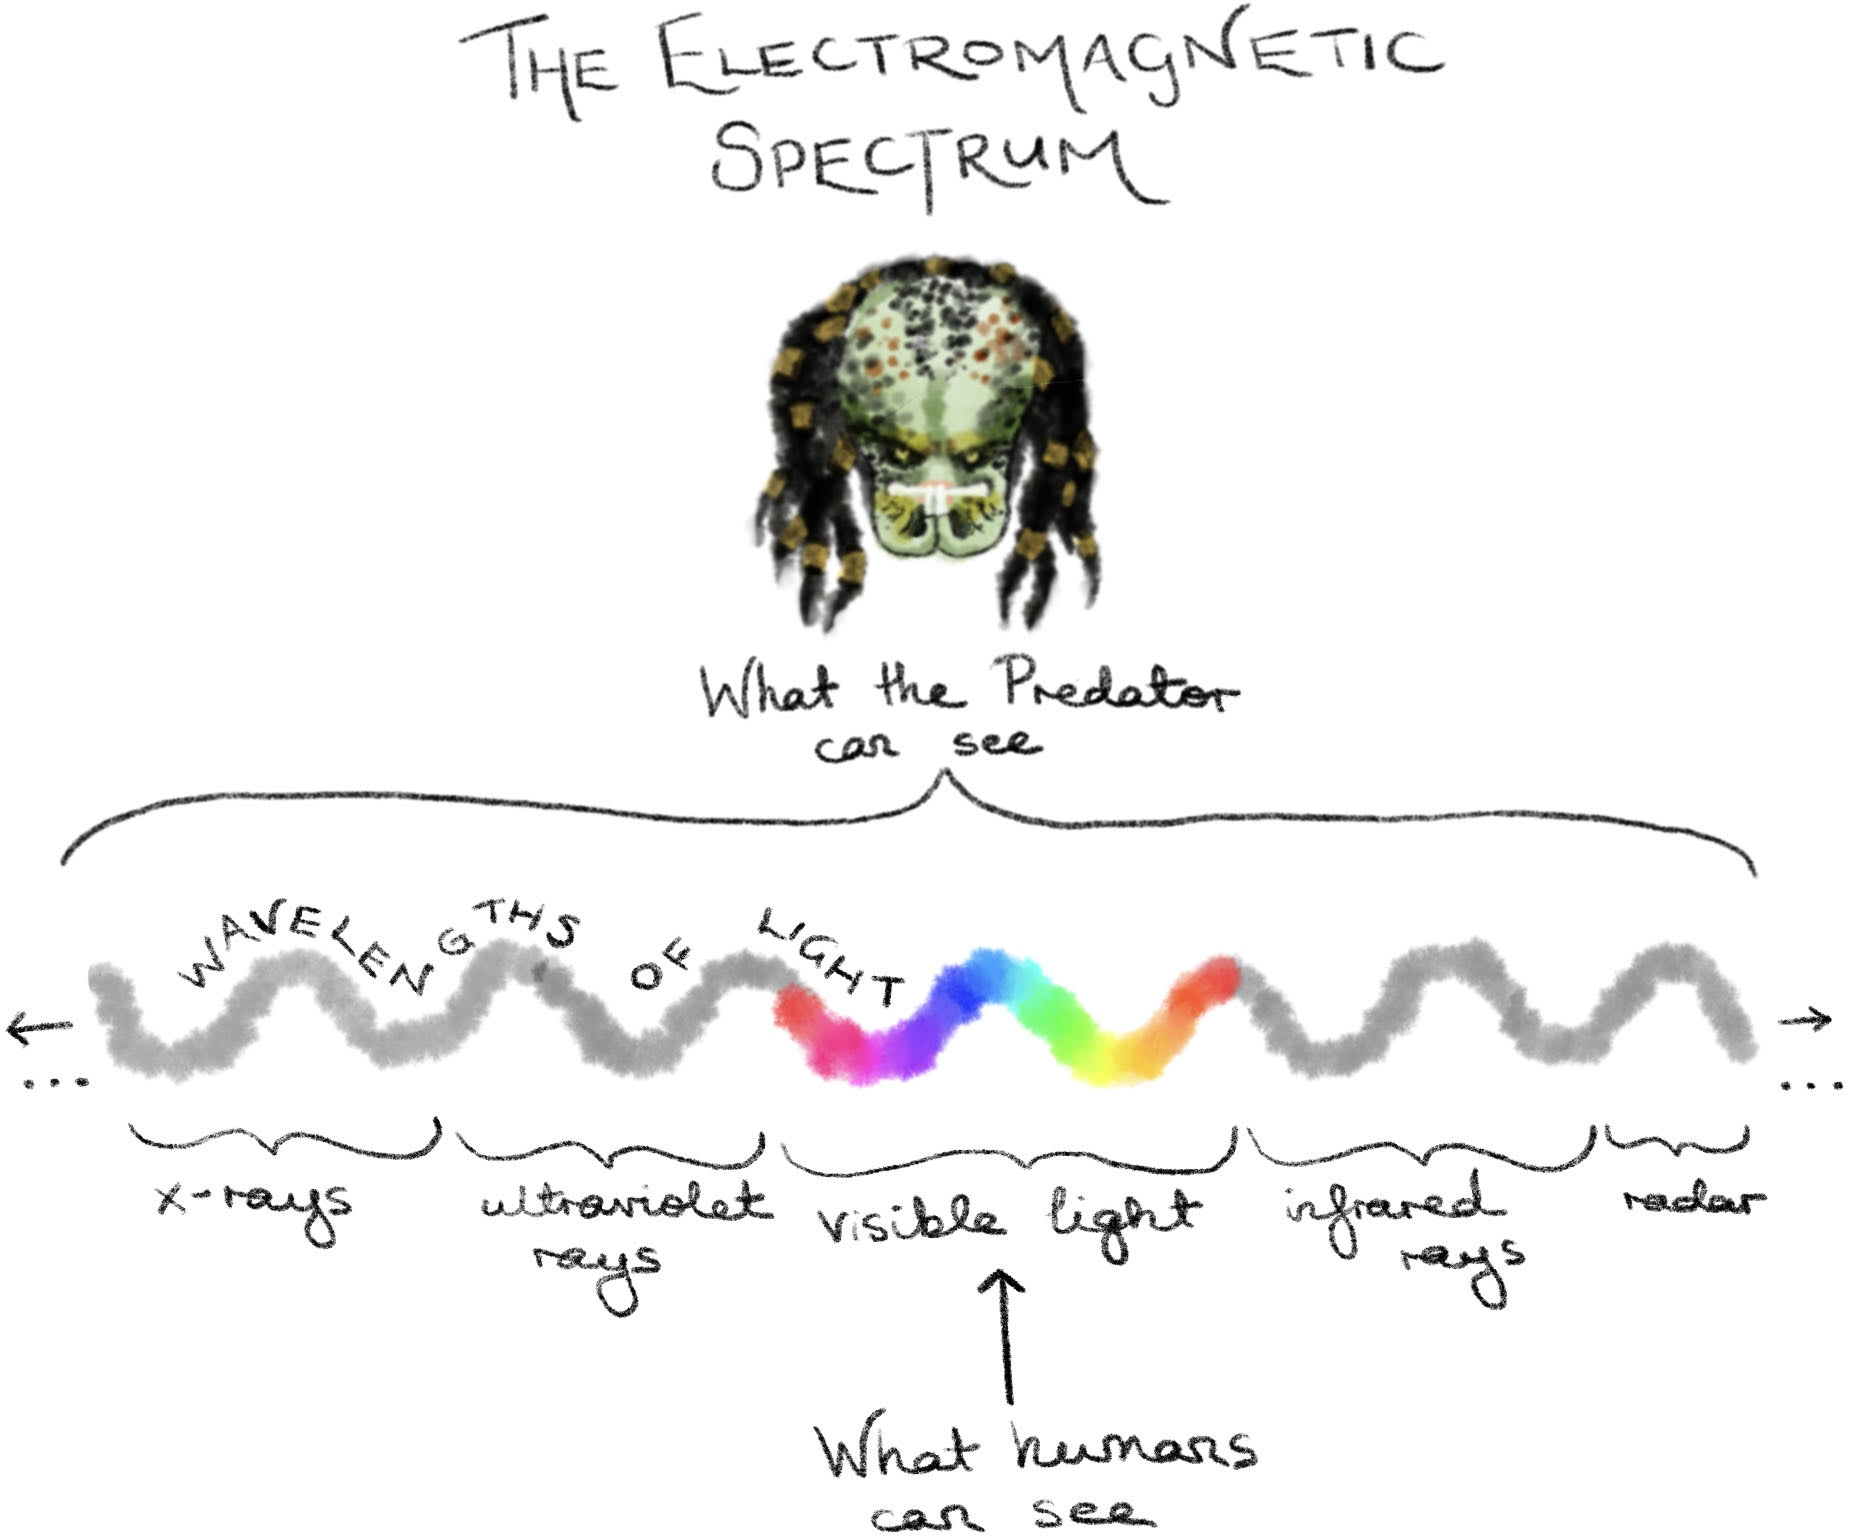 THE ELECTROMAGNETIC
SPECTRUM
What the Predator
can see
WAVELENGTHS OF LIGHT
...
...
x-rays
ultraviolet
rays
visible light
infrared
rays
radar
What humans
can see